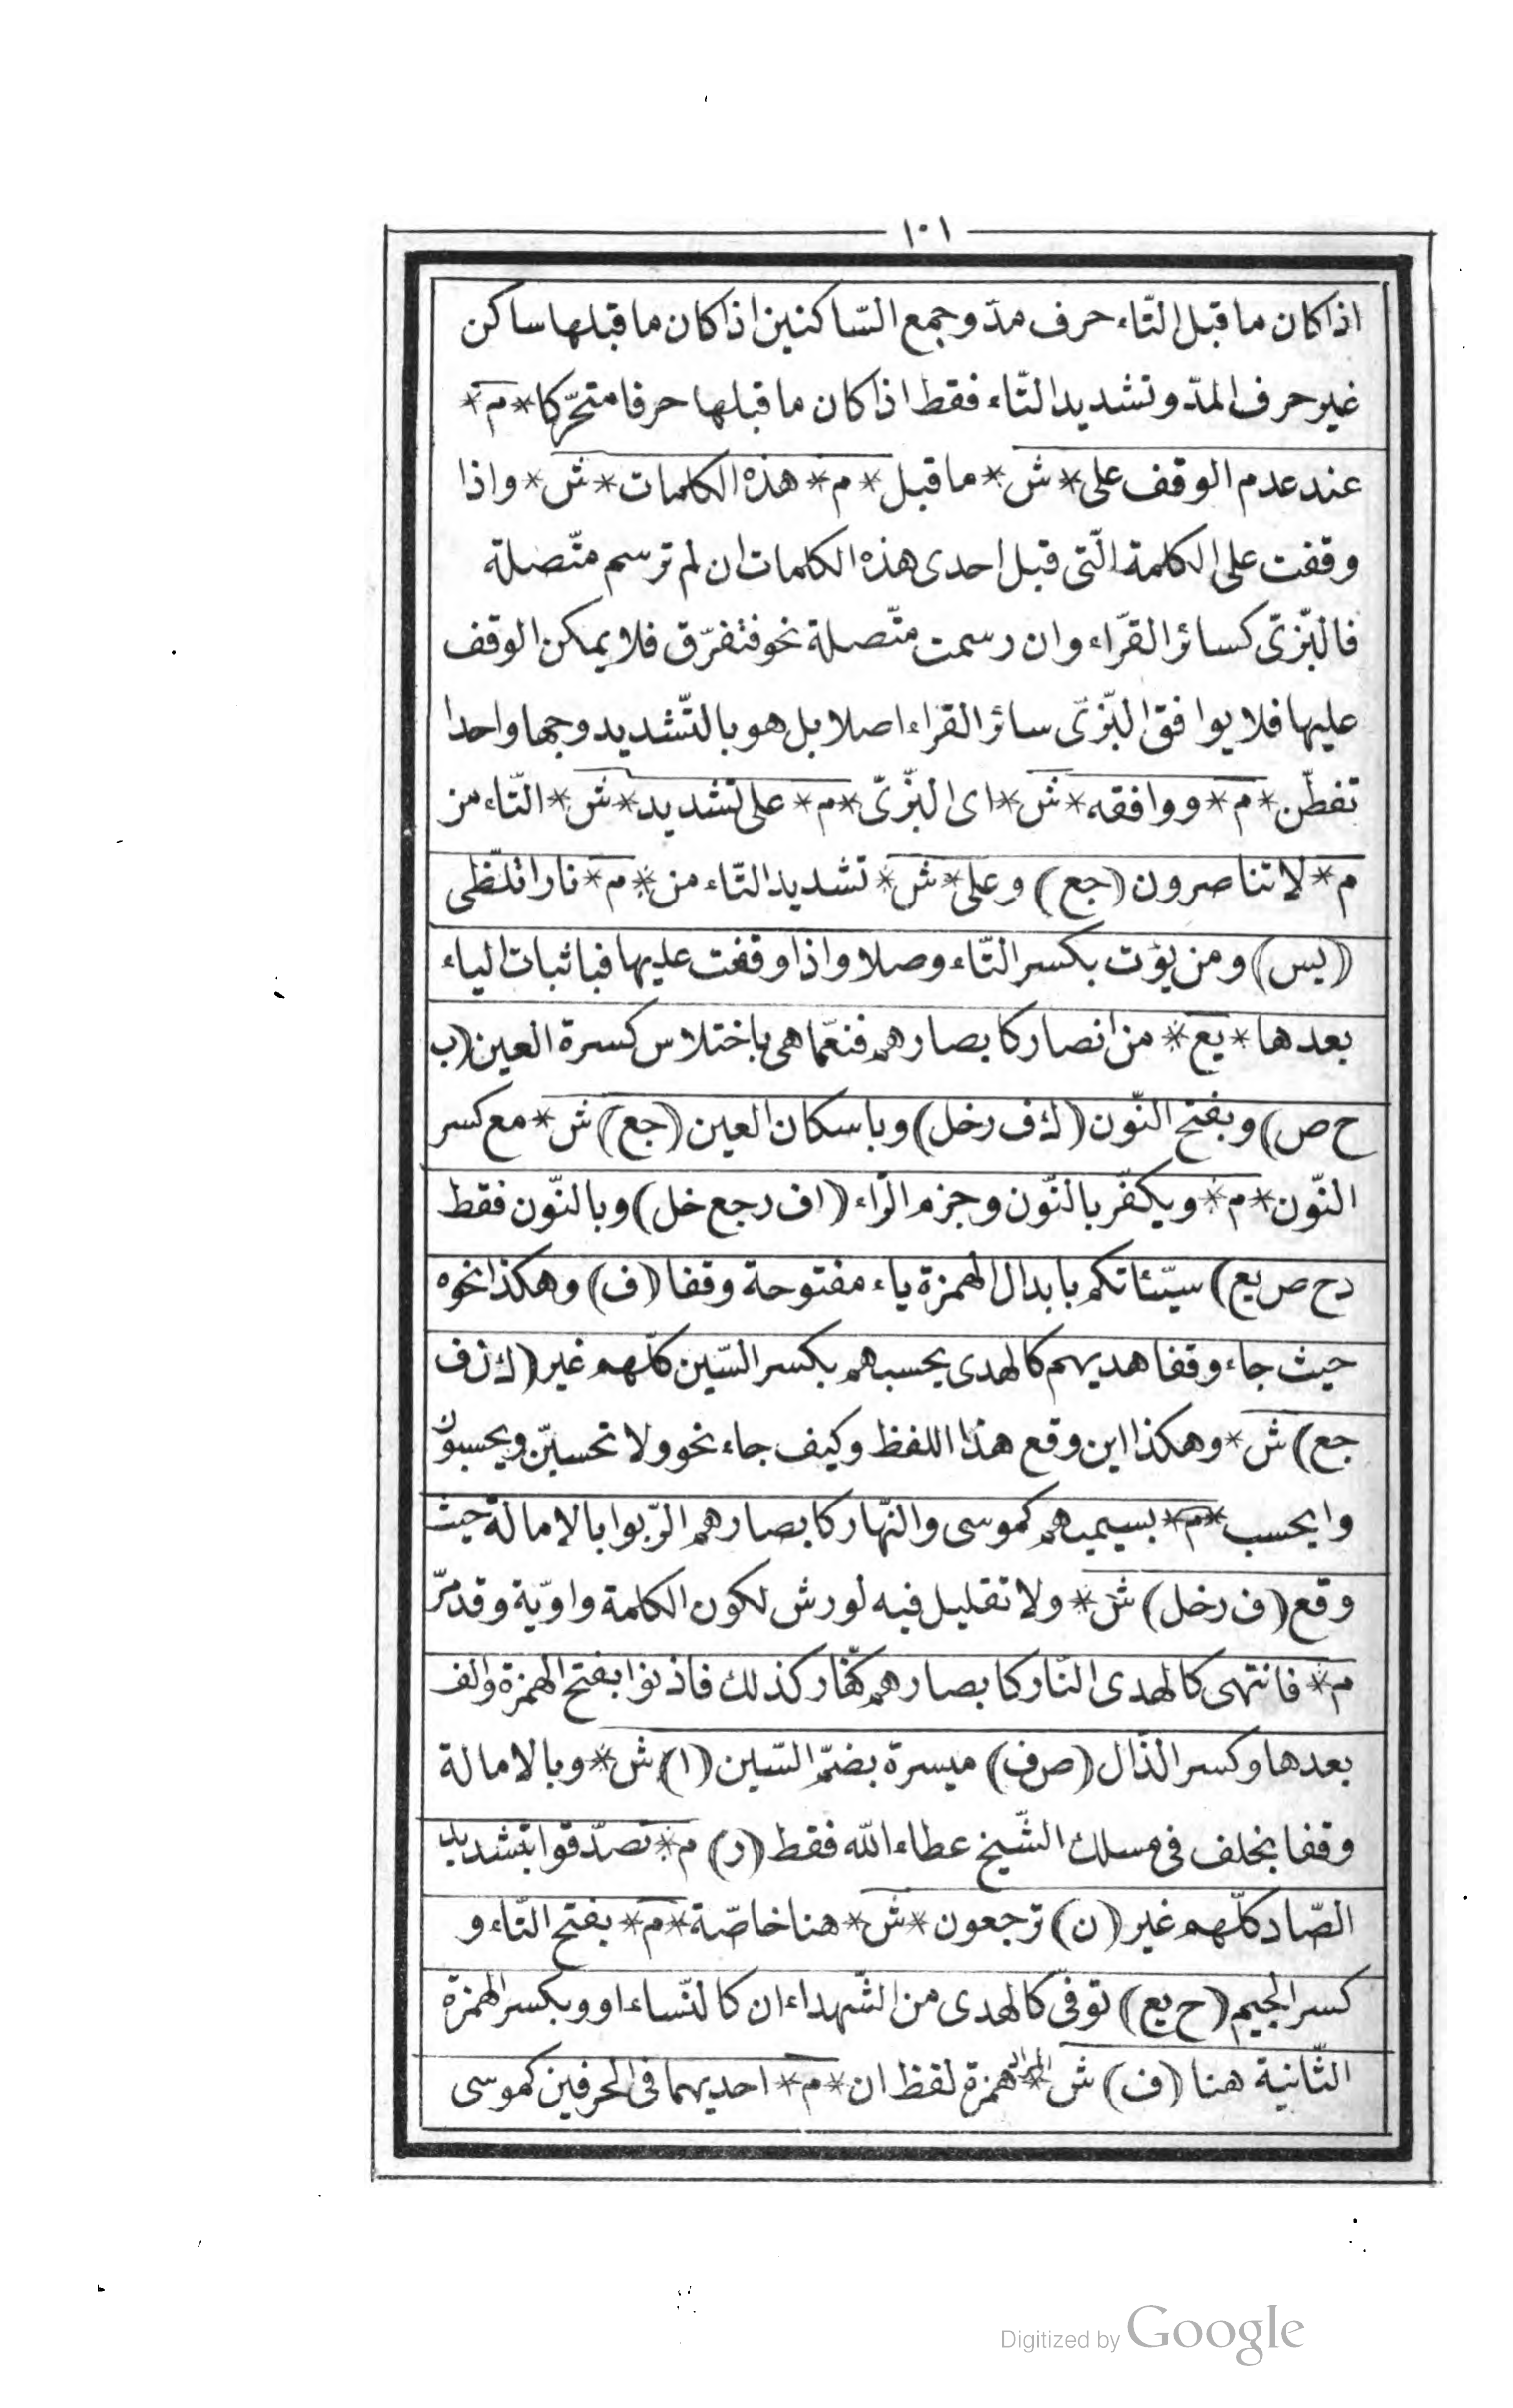 ١٠١
اذا كان ما قبل التّاء حرف مدّ وجمع السّاكنين اذا كان ما قبلها ساكن
غير حرف المدّ وتشديد التّاء فقط اذا كان ما قبلها حرفا متحرّكا * م *
عند عدم الوقف على * ش * ما قبل * م * هذه الكلمات * ش * واذا
وقفت على الكلمة الّتى قبل احدى هذه الكلمات ان لم ترسم متّصلة
فالبّزىّ كسائر القرّاء وان رسمت متّصلة نحو فتفرّق فلا يمكن الوقف
عليها فلا يوافق البّزىّ سائر القراء اصلا بل هو بالتّشديد وجها واحدا
تفطّن * م * ووافقه * ش * اى البّزىّ * م * على تشديد * ش * التّاء من
م * لا تناصرون (جع) وعلى * ش * تشديد التّاء من * م * نارا تلظّى
(يس) ومن يؤت بكسر التّاء وصلا واذا وقفت عليها فباثبات الياء
بعدها * يع * من انصار كابصارهم فنعمّا هى باختلاس كسرة العين (ب
ح ص) وبفتح النّون (ك ف ر خل) وباسكان العين (جع) ش * مع كسر
النّون * م * ويكفّر بالنّون وجزم الرّاء (ا ف ر جع خل) وبالنّون فقط
(د ح ص يع) سيّئاتكم بابدال الهمزة ياء مفتوحة وقفا (ف) وهكذا نحوه
حيث جاء وقفا هديهم كالهدى يحسبهم بكسر السّين كلّهم غير (ك ن ف
جع) ش * وهكذا اين وقع هذا اللفظ وكيف جاء نحو ولا تحسبنّ ويحسبون
وايحسب * م * بسيميهم كموسى والنّهار كابصارهم الرّبوا بالامالة حيث
وقع (ف ر خل) ش * ولا تقليل فيه لورش لكون الكلمة واويّة وقد مرّ
م * فانتهى كالهدى النّار كابصارهم كفّار كذلك فاذنوا بفتح الهمزة والف
بعدها وكسر الذّال (ص ف) ميسرة بضمّ السّين (ا) ش * وبالامالة
وقفا بخلف فى مسلك الشّيخ عطاء الله فقط (ر) م * تصدّقوا بتشديد
الصّاد كلّهم غير (ن) ترجعون * ش * هنا خاصّة * م * بفتح التّاء و
كسر الجيم (ح يع) توفّى كالهدى من الشّهداء ان كالنّساء او وبكسر الهمزة
الثّانية هنا (ف) ش * همزة لفظ ان * م * احديهما فى الحرفين كموسى
Digitized by Google